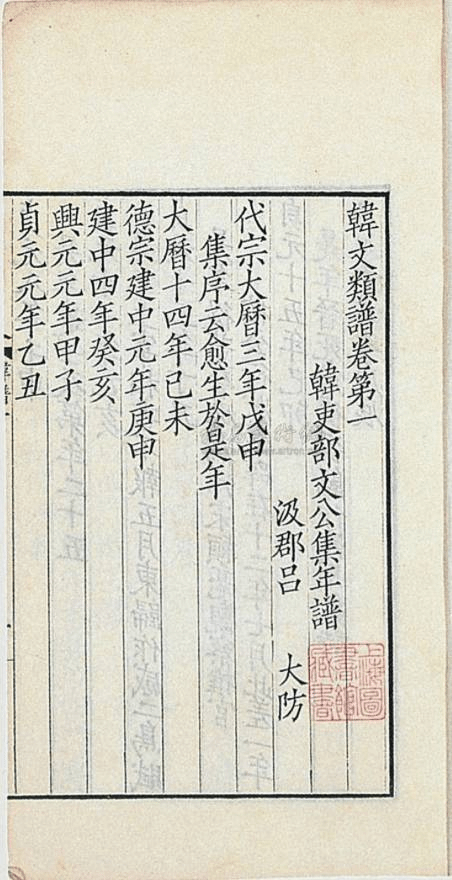 韓文類譜卷第一
韓吏部文公集年譜
汲郡呂 大防
代宗大曆三年戊申
集序云愈生於是年
大曆十四年己未
德宗建中元年庚申
建中四年癸亥
興元元年甲子
貞元元年乙丑
上海圖
書館
藏書